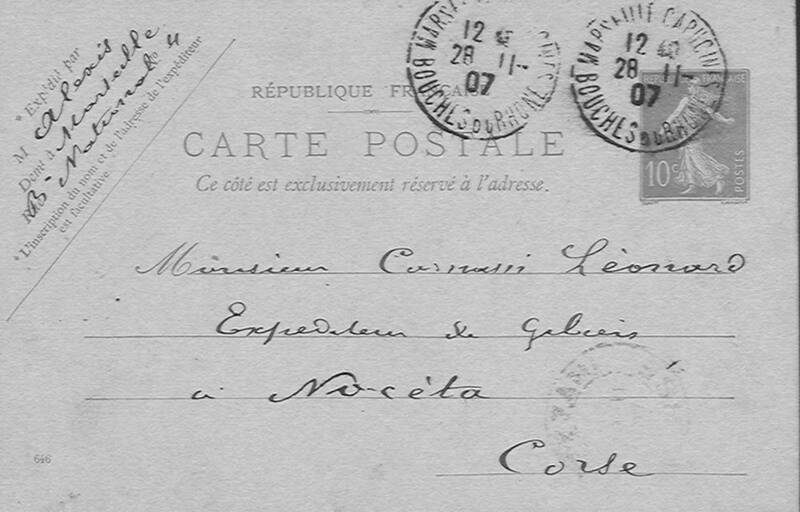 * Expédié par
M Alexis
Demt à Marseille
Bd National 4
* L'inscription du nom et de l'adresse de l'expéditeur
est facultative.
RÉPUBLIQUE FRANÇAISE
CARTE POSTALE
Ce côté est exclusivement réservé à l'adresse.
MARSEILLE CAPUCINES
12
28 11
07
BOUCHES DU RHONE
MARSEILLE CAPUCINES
12
28 11
07
BOUCHES DU RHONE
10c
POSTES
Monsieur Léonard
Expéditeur de Gibiers
à Nocéta
Corse
646